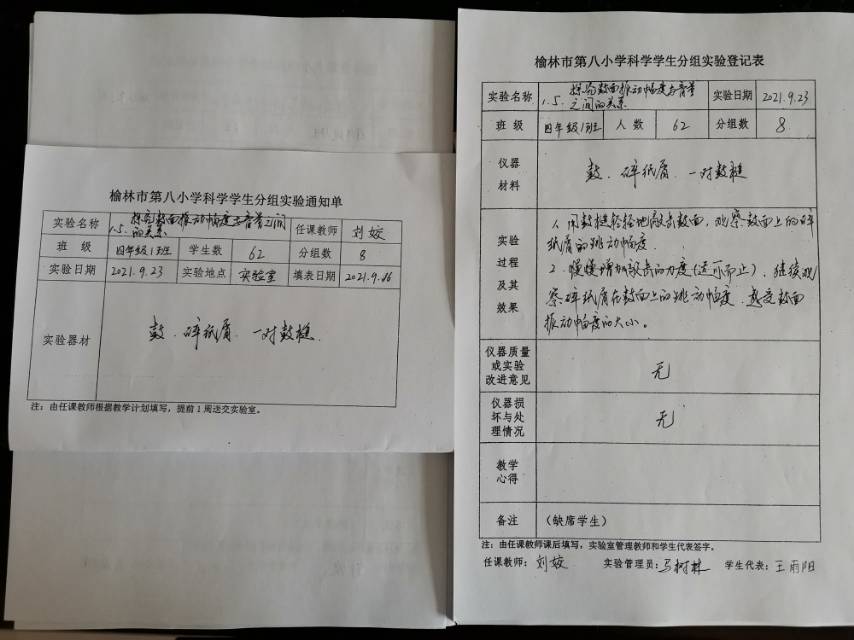 榆林市第八小学科学学生分组实验通知单
实验名称 1.5. 探究鼓面振动幅度与音量之间的关系 任课教师 刘姣
班 级 四年级1班 学生数 62 分组数 8
实验日期 2021.9.23 实验地点 实验室 填表日期 2021.9.16
实验器材 鼓、碎纸屑、一对鼓槌
注：由任课教师根据教学计划填写，提前1周送交实验室。
榆林市第八小学科学学生分组实验登记表
实验名称 1.5. 探究鼓面振动幅度与音量之间的关系 实验日期 2021.9.23
班 级 四年级1班 人 数 62 分组数 8
仪器材料 鼓、碎纸屑、一对鼓槌
实验过程及其效果
1、用鼓槌轻轻地敲击鼓面，观察鼓面上的碎
纸屑的跳动幅度.
2、慢慢增加敲击的力度（适可而止），继续观
察碎纸屑在鼓面上的跳动幅度，感受鼓面
振动幅度的大小。
仪器质量或实验改进意见 无
仪器损坏与处理情况 无
教学心得
备注 （缺席学生）
注：由任课教师课后填写，实验室管理教师和学生代表签字。
任课教师：刘姣 实验管理员：马树林 学生代表：王雨阳